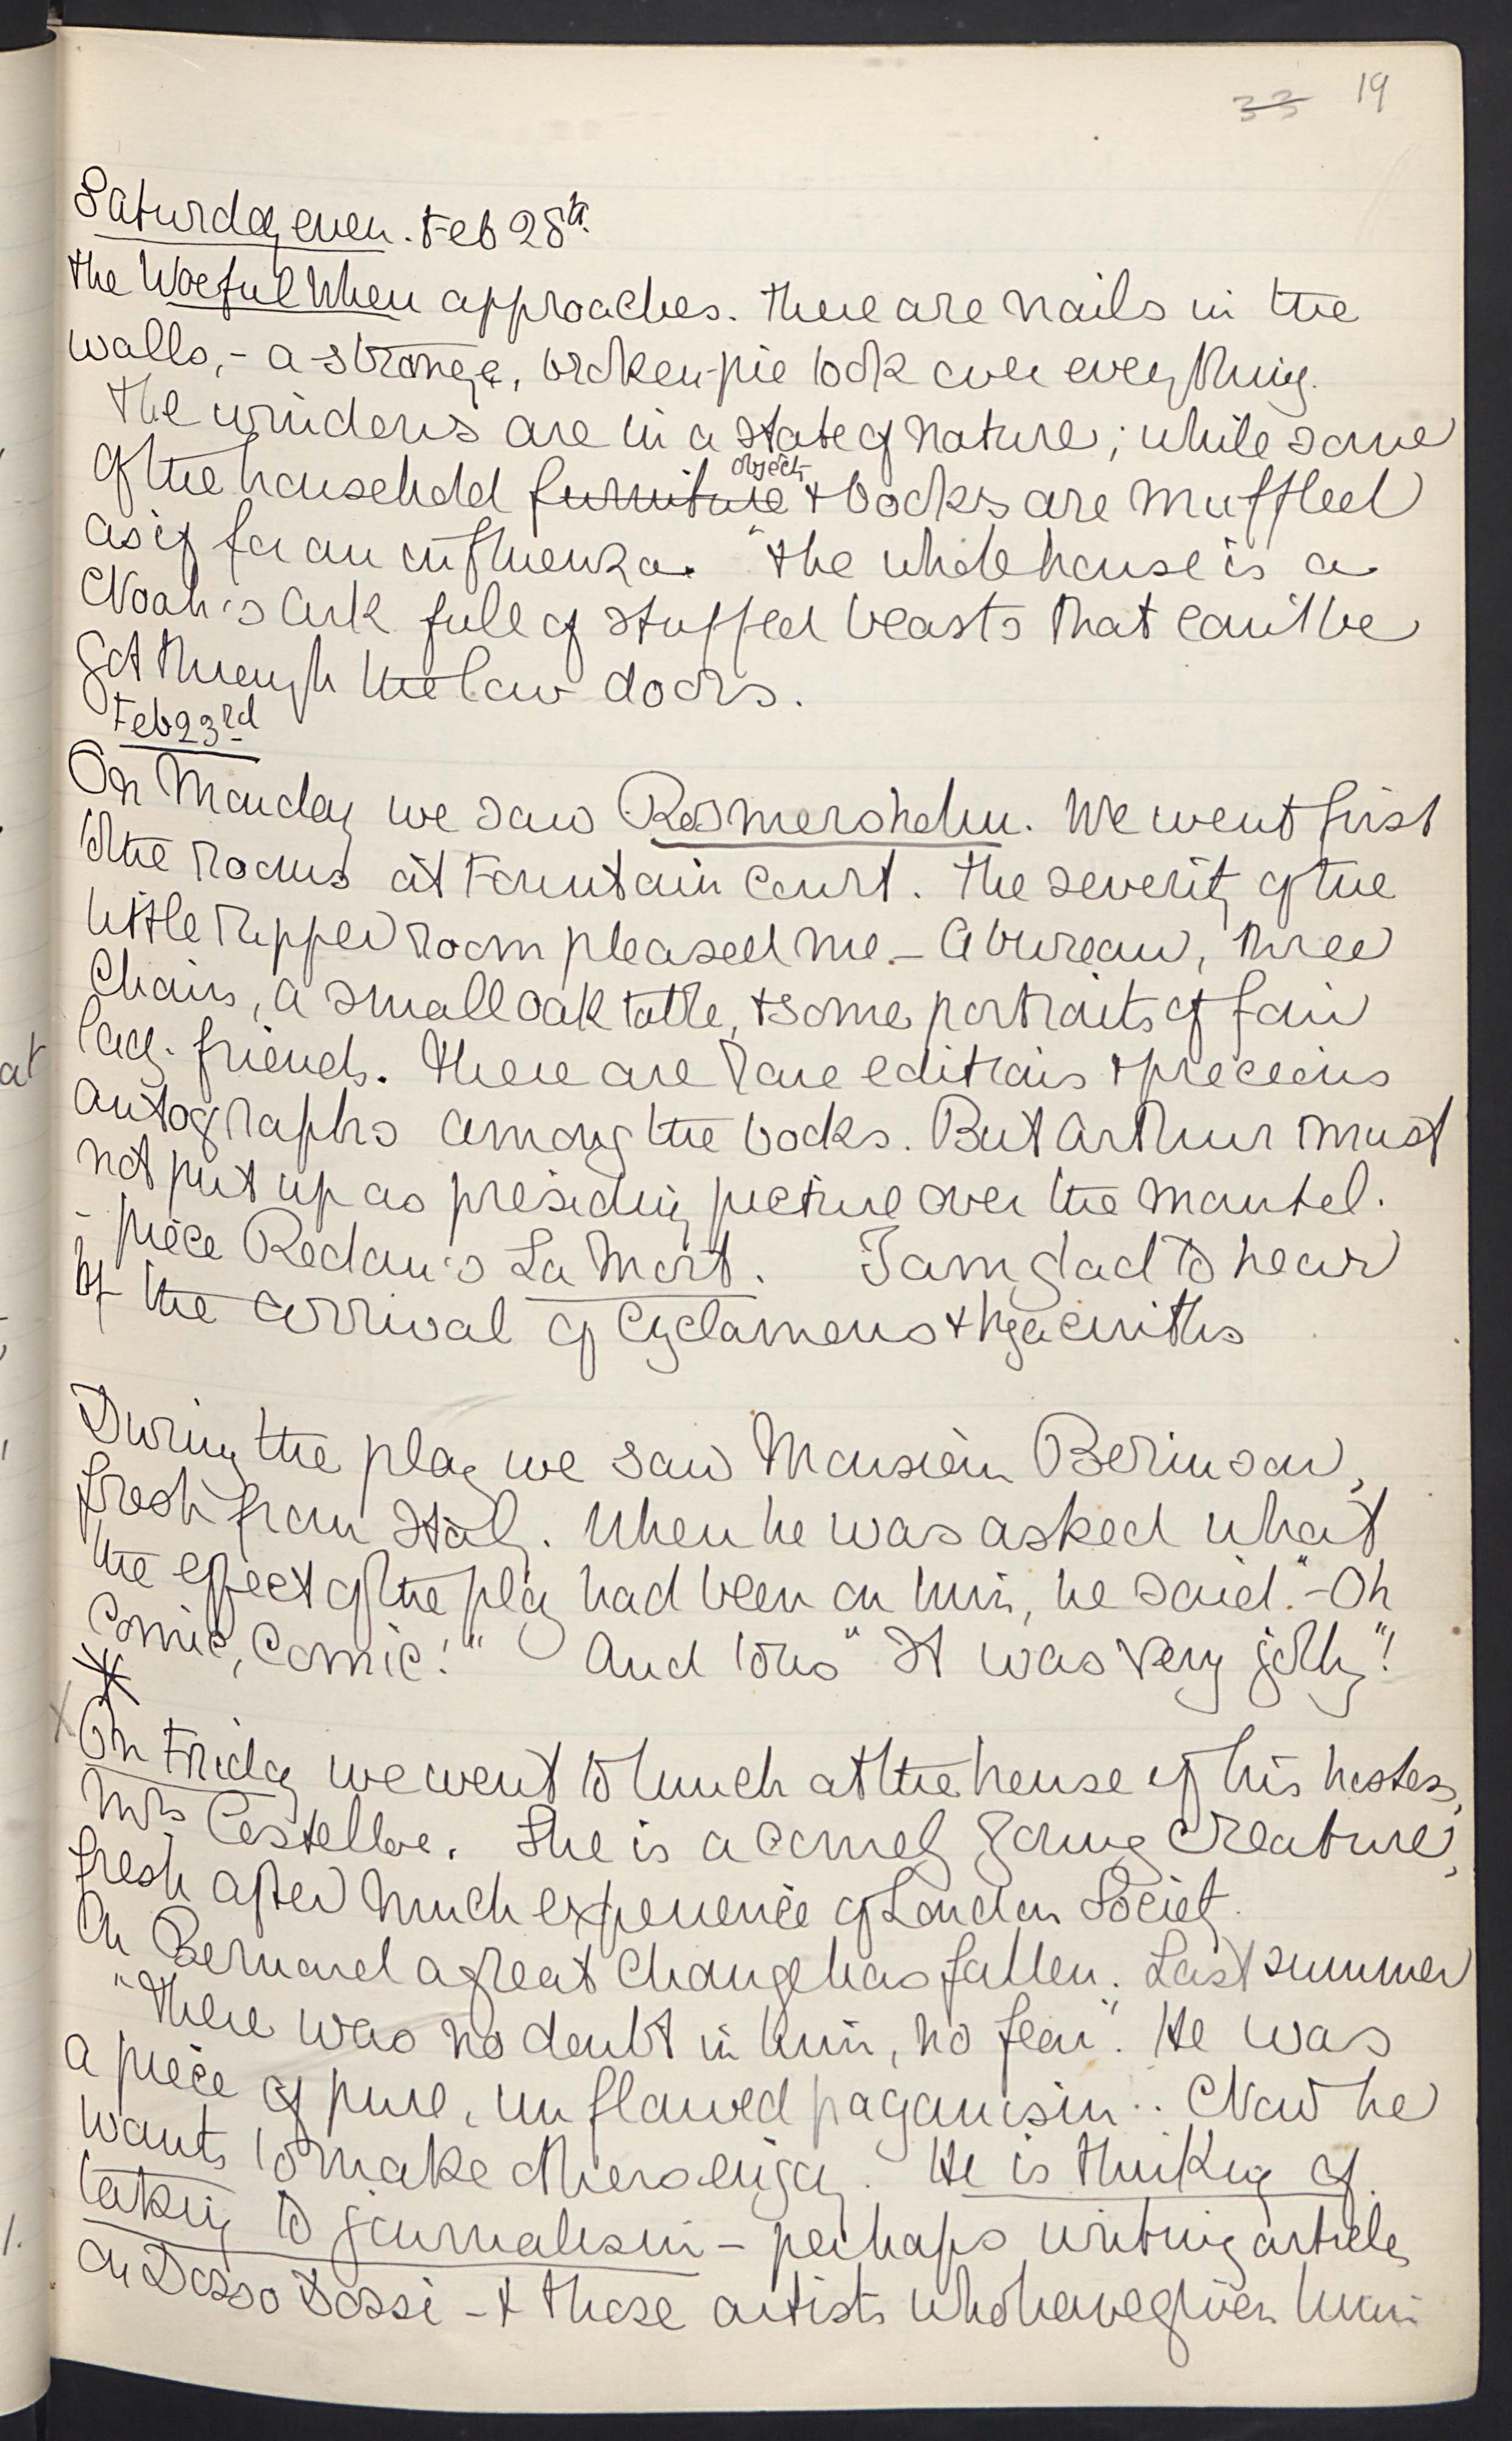 33 19
Saturday even. Feb 28th.
The Woeful When approaches. There are nails in the
walls, - a strange, broken-pie look over everything.
The windows are in a state of nature; while some
of the household furniture objects & books are muffled
as if for an influenza. "The whole house is a
Noah's Ark full of stuffed beasts that can't be
got through the low doors.
Feb 23rd
On Monday we saw Rosmersholm. We went first
to the rooms at Fountain Court. The severity of the
little upper room pleased me. - A bureau, three
chairs, a small oak table, & some portraits of fair
lady-friends. There are rare editions & precious
autographs among the books. But Arthur must
not put up as presiding picture over the mantel-
-piece Redon's La Mort. I am glad to hear
of the arrival of Cyclamens & hyacinths
During the play we saw Monsieur Berinson,
fresh from Italy. When he was asked what
the effect of the play had been on him, he said. "- Oh
Comic, Comic!" And to us "It was very jolly"!
On Friday we went to lunch at the house of his hostess,
Mrs Costelloe. She is a comely young creature,
fresh after much experience of London Society.
On Bernard a great change has fallen. Last summer
"There was no doubt in him, no fear". He was
a piece of pure, unflawed paganism .. Now he
wants to make others enjoy. He is thinking of
taking to journalism - perhaps writing articles
on Dosso Dossi - & those artists who have given him